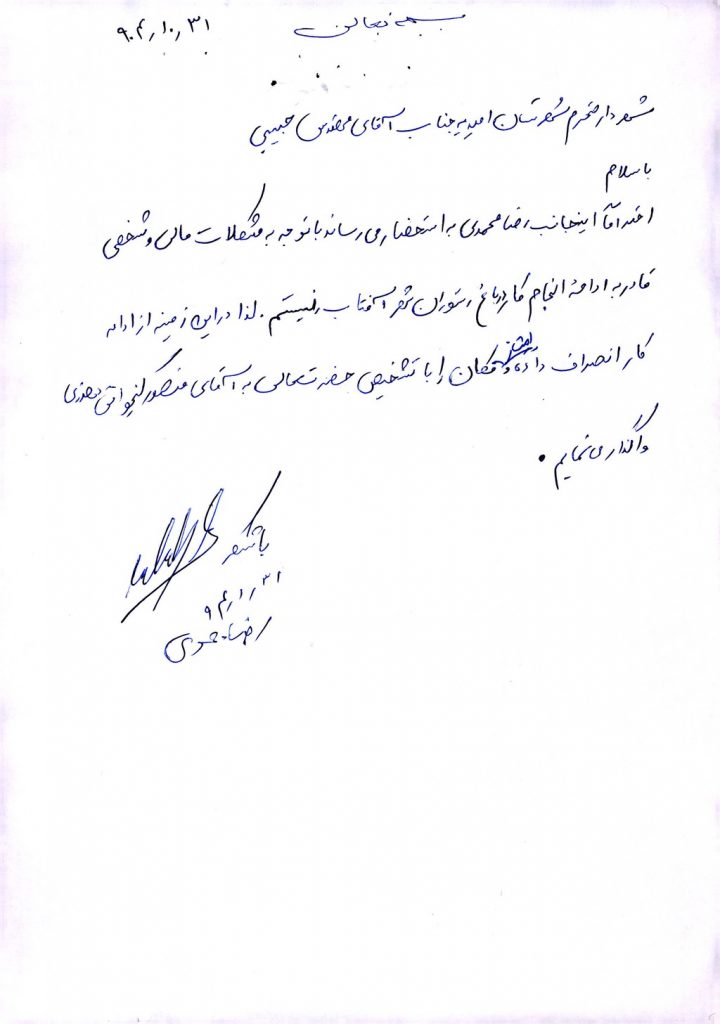 بسمه تعالی
۹۰٫۱۰٫۳۱
شهردار محترم شهرستان امیدیه جناب آقای مهندس حبیبی
با سلام
احتراماً اینجانب رضا محمدی به استحضار می رساند با توجه به مشکلات مالی و شخصی
قادر به ادامهٔ انجام کار در باغ رستوران شهر آفتاب نیستم. لذا در این زمینه از ادامه
کار انصراف داده و امتیاز مکان را با تشخیص حضرتعالی به آقای منصور
واگذار می نمایم.
با تشکر
رضا محمدی